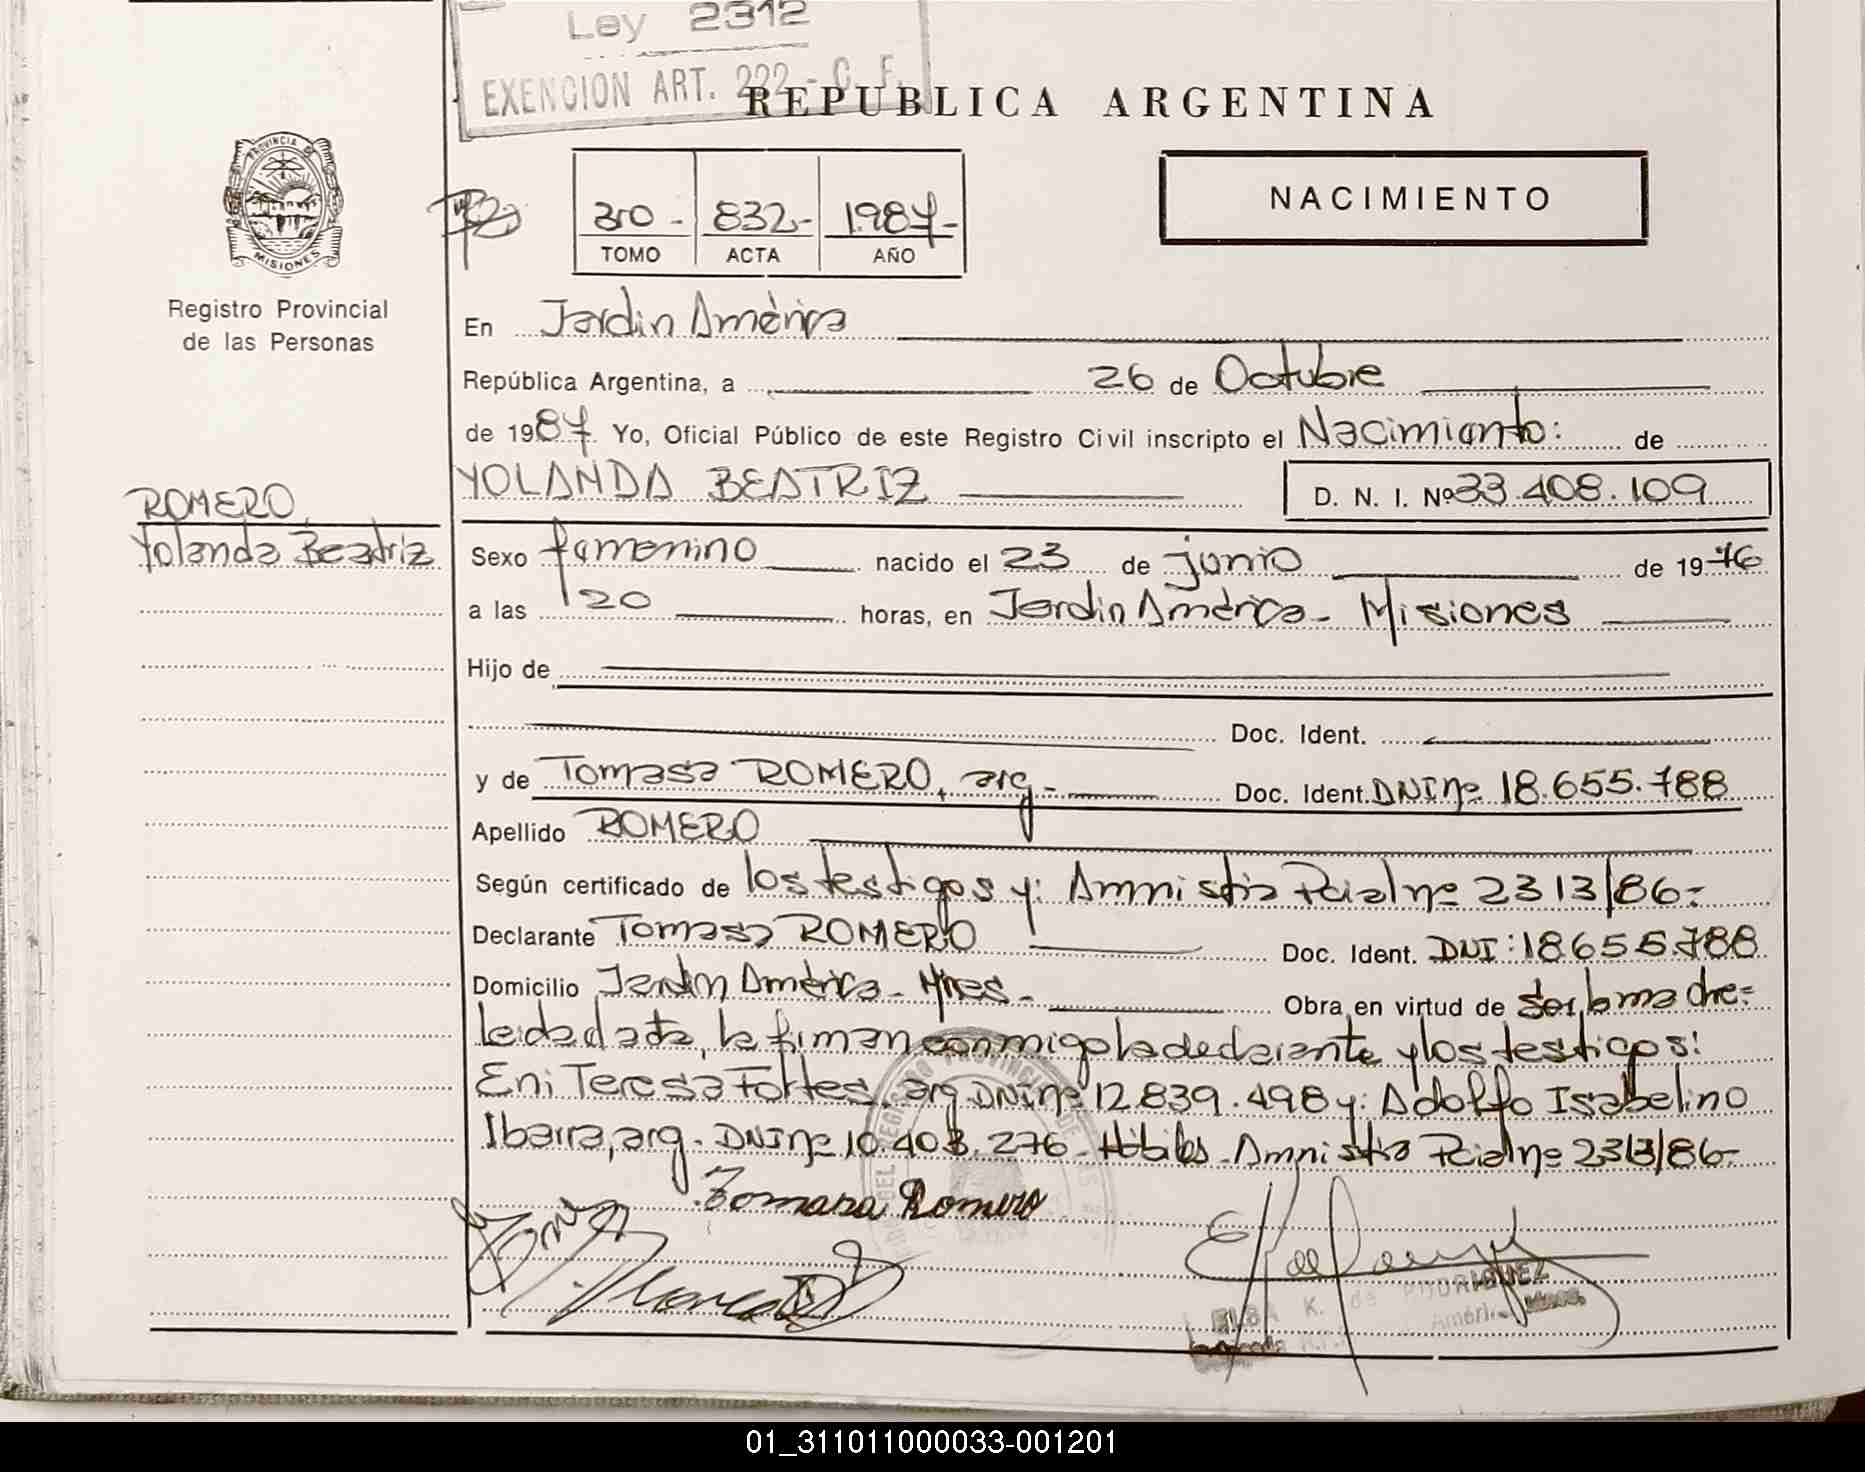 Ley 2312
EXENCION ART. 222 - C. F.
REPUBLICA ARGENTINA
PROVINCIA DE
MISIONES
Registro Provincial
de las Personas
3ro - 832- 1.987-
TOMO ACTA AÑO
NACIMIENTO
En Jardin América
República Argentina, a 26 de Octubre
de 1987. Yo, Oficial Público de este Registro Civil inscripto el Nacimiento: de
YOLANDA BEATRIZ D. N. I. Nº 33.408.109
ROMERO
Yolanda Beatriz
Sexo femenino nacido el 23 de junio de 1976
a las 20 horas, en Jardin América - Misiones
Hijo de
Doc. Ident.
y de Tomasa ROMERO, arg.- Doc. Ident. DNI nº 18.655.788
Apellido ROMERO
Según certificado de los testigos y: Amnistia Pcial nº 2313/86-
Declarante Tomasa ROMERO Doc. Ident. DNI: 18.655.788
Domicilio Jardin América - Mnes - Obra en virtud de ser la madre-
leida el acta, la firman conmigo la declarante y los testigos:
Eni Teresa Fortes, arg. DNI nº 12.839.498 y: Adolfo Isabelino
Ibarra, arg. DNI nº 10.403.276 - Hábiles - Amnistia Pcial nº 2313/86-
Tomasa Romero
ELBA K. de RODRIGUEZ
01_311011000033-001201